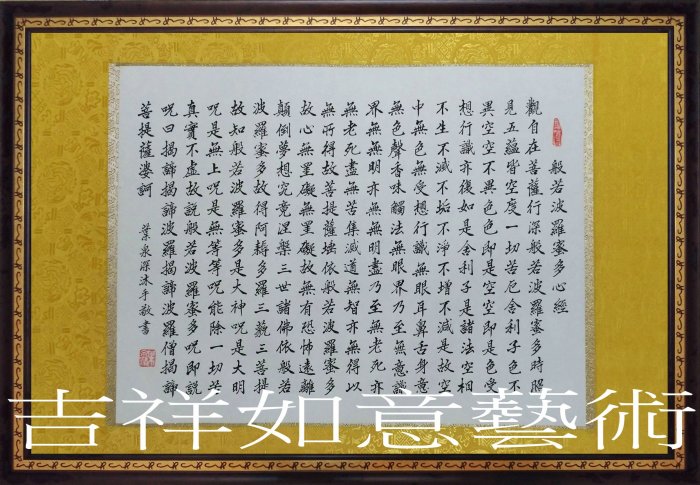 般若波羅蜜多心經
觀自在菩薩行深般若波羅蜜多時照
見五蘊皆空度一切苦厄舍利子色不
異空空不異色色即是空空即是色受
想行識亦復如是舍利子是諸法空相
不生不滅不垢不淨不增不減是故空
中無色無受想行識無眼耳鼻舌身意
無色聲香味觸法無眼界乃至無意識
界無無明亦無無明盡乃至無老死亦
無老死盡無苦集滅道無智亦無得以
無所得故菩提薩埵依般若波羅蜜多
故心無罣礙無罣礙故無有恐怖遠離
顛倒夢想究竟涅槃三世諸佛依般若
波羅蜜多故得阿耨多羅三藐三菩提
故知般若波羅蜜多是大神呪是大明
呪是無上呪是無等等呪能除一切苦
真實不虛故說般若波羅蜜多呪即說
呪曰揭諦揭諦波羅揭諦波羅僧揭諦
菩提薩婆訶
葉泉深沐手敬書
吉祥如意藝術